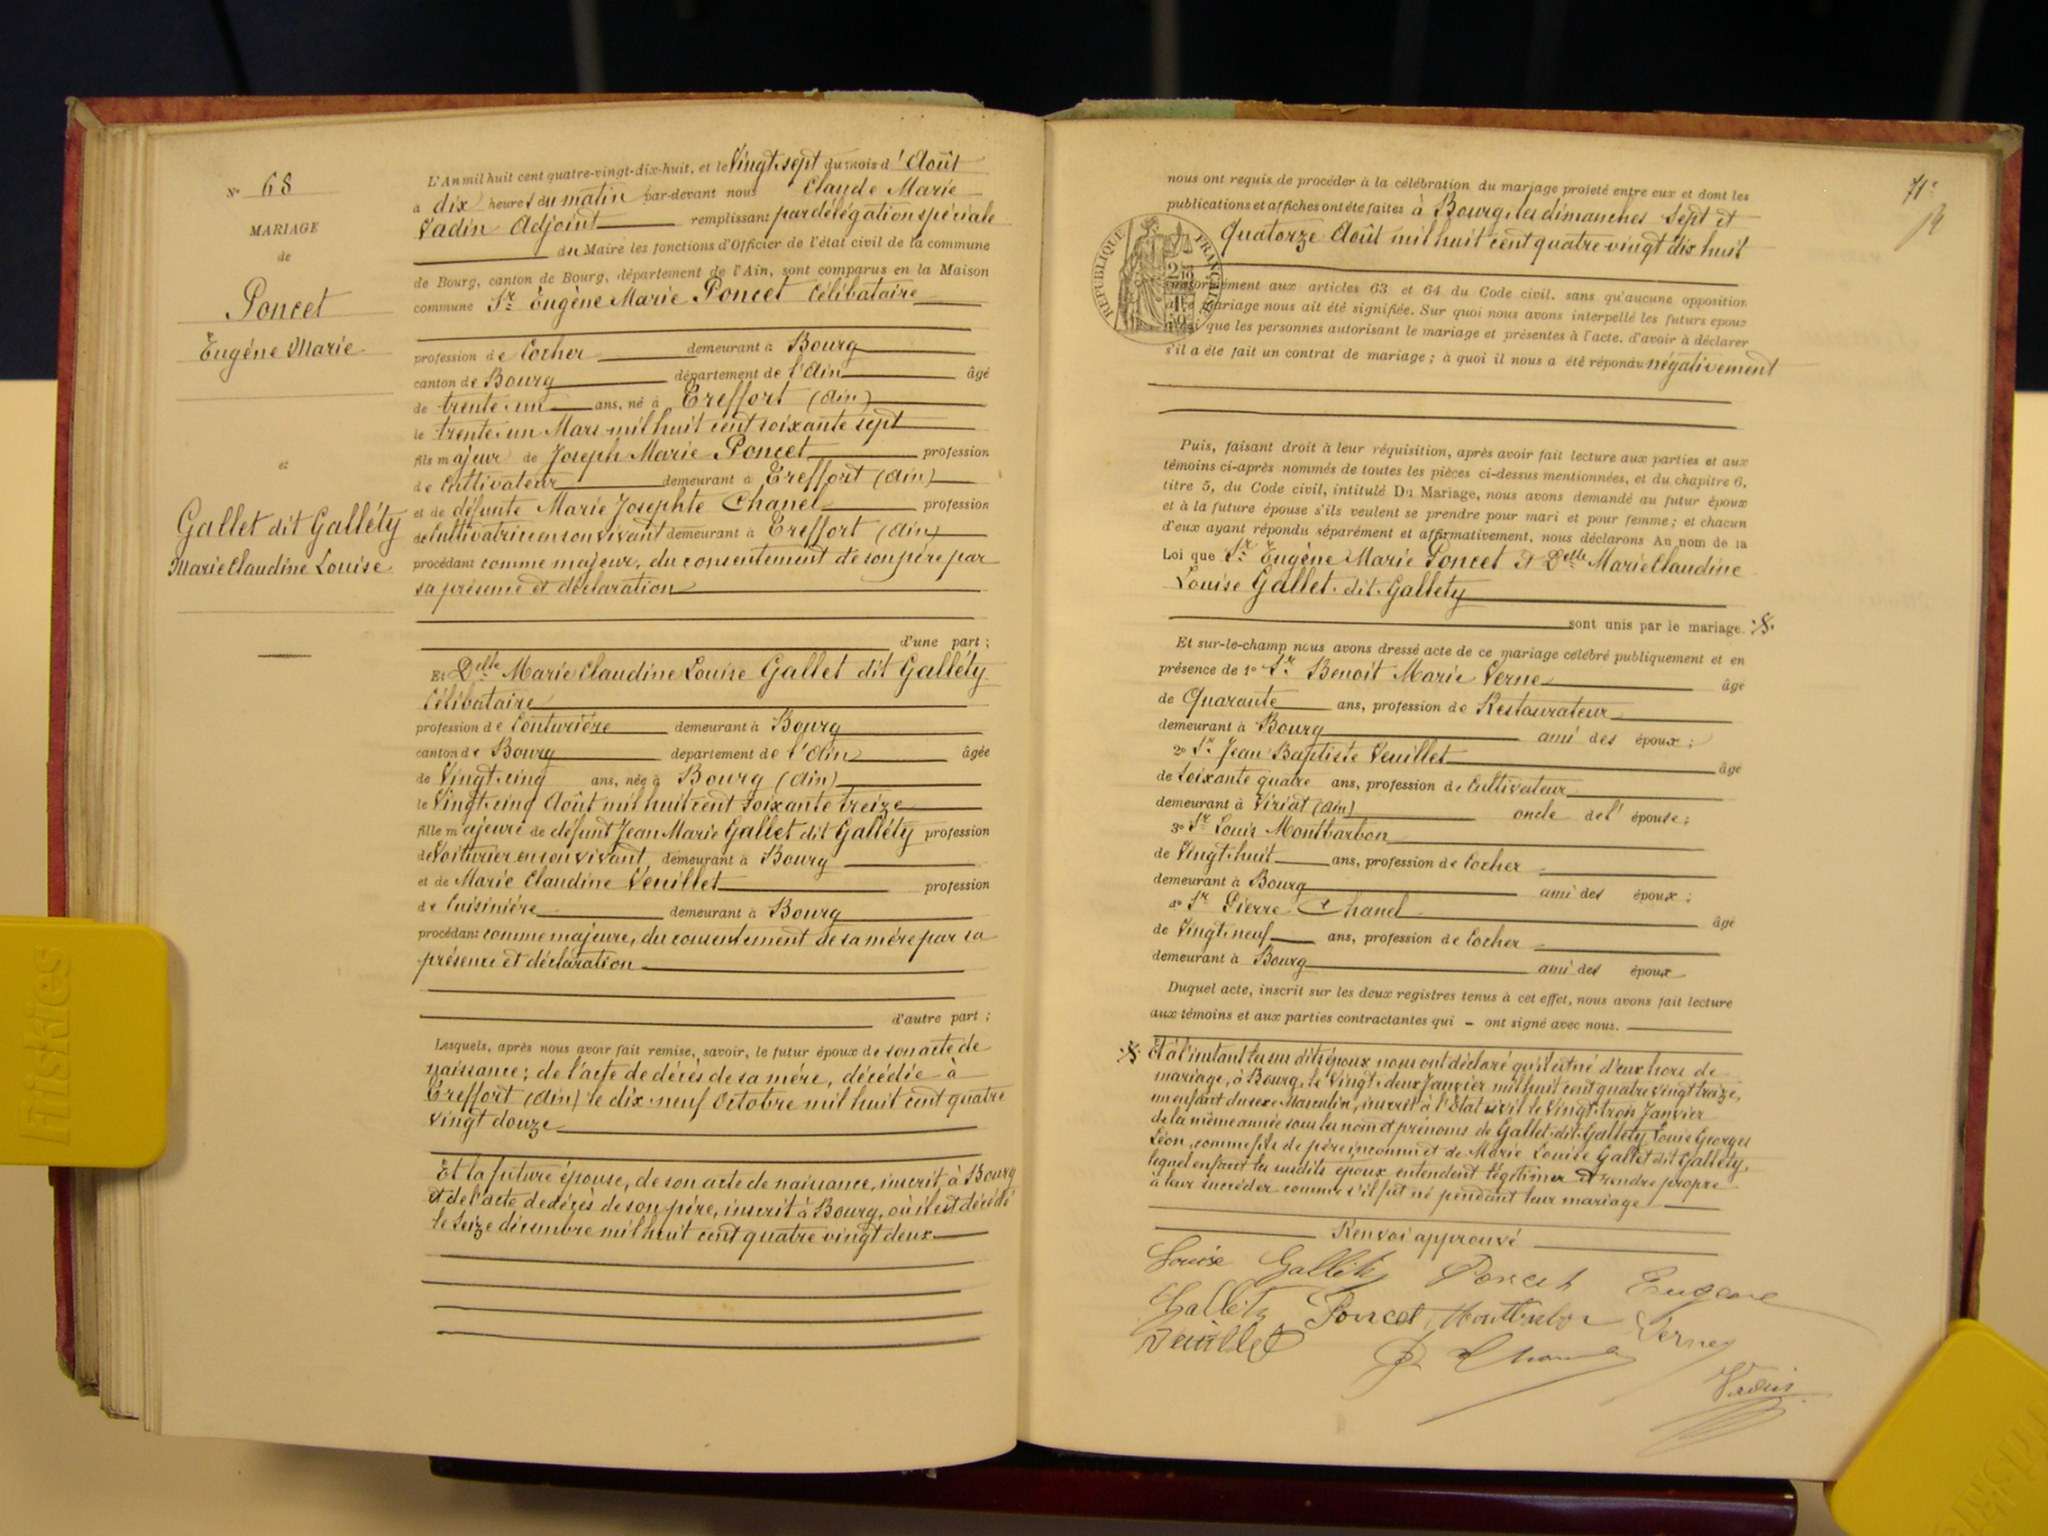 N° 68
MARIAGE
de
Poncet
Eugéne Marie
et
Gallet dit Galléty
Marie Claudine Louise
L'An mil huit cent quatre-vingt-dix-huit, et le Vingt sept du mois d'Août
à dix heures du matin par-devant nous Claude Marie
Vadin Adjoint remplissant par délégation spéciale
du Maire les fonctions d'Officier de l'état civil de la commune
de Bourg, canton de Bourg, département de l'Ain, sont comparus en la Maison
commune Sr Eugène Marie Poncet Célibataire
profession de Cocher demeurant à Bourg
canton de Bourg département de l'Ain âgé
de trente un ans, né à Treffort (Ain)
le trente un Mars mil huit cent soixante sept
fils majeur de Joseph Marie Poncet profession
de Cultivateur demeurant à Treffort (Ain)
et de défunte Marie Josephte Chanel profession
de Cultivatrice en son vivant demeurant à Treffort (Ain)
procédant comme majeur, du consentement de son père par
sa présence et déclaration
d'une part;
Et Delle Marie Claudine Louise Gallet dit Galléty
Célibataire
profession de Couturière demeurant à Bourg
canton de Bourg departement de l'Ain âgée
de Vingt cinq ans, née à Bourg (Ain)
le Vingt cinq Août mil huit cent soixante treize
fille majeure de défunt Jean Marie Gallet dit Galléty profession
de Voiturier en son vivant, demeurant à Bourg
et de Marie Claudine Veuillet profession
de Cuisinière demeurant à Bourg
procédant comme majeure, du consentement de sa mère par sa
présence et déclaration
d'autre part;
Lesquels, après nous avoir fait remise, savoir, le futur époux de son acte de
naissance; de l'acte de décès de sa mère, décédée à
Treffort (Ain) le dix neuf Octobre mil huit cent quatre
vingt douze
Et la future épouse, de son acte de naissance, inscrit à Bourg
et de l'acte de décès de son père, inscrit à Bourg, où il est décédé
le Seize décembre mil huit cent quatre vingt deux
71e
nous ont requis de procéder à la célébration du mariage projeté entre eux et dont les
publications et affiches ont été faites à Bourg, les dimanches Sept et
Quatorze Août mil huit cent quatre vingt dix huit
REPUBLIQUE FRANÇAISE
conformément aux articles 63 et 64 du Code civil, sans qu'aucune opposition
à ce mariage nous ait été signifiée. Sur quoi nous avons interpellé les futurs epoux
ainsi que les personnes autorisant le mariage et présentes à l'acte, d'avoir à déclarer
s'il a été fait un contrat de mariage; à quoi il nous a été répondu négativement
Puis, faisant droit à leur réquisition, après avoir fait lecture aux parties et aux
témoins ci-après nommés de toutes les pièces ci-dessus mentionnées, et du chapitre 6,
titre 5, du Code civil, intitulé Du Mariage, nous avons demandé au futur époux
et à la future épouse s'ils veulent se prendre pour mari et pour femme; et chacun
d'eux ayant répondu séparément et affirmativement, nous déclarons Au nom de la
Loi que Sr Eugène Marie Poncet et Delle Marie Claudine
Louise Gallet dit Galléty
sont unis par le mariage.
Et sur-le-champ nous avons dressé acte de ce mariage célébré publiquement et en
présence de 1° Sr Benoit Marie Verne âgé
de Quarante ans, profession de Restaurateur
demeurant à Bourg ami des époux;
2° Sr Jean Baptiste Veuillet âgé
de Soixante quatre ans, profession de Cultivateur
demeurant à Viriat (Ain) oncle de l'épouse;
3° Sr Louis Montbarbon
de Vingt huit ans, profession de Cocher
demeurant à Bourg ami des époux;
4° Sr Pierre Chanel âgé
de Vingt neuf ans, profession de Cocher
demeurant à Bourg ami des époux
Duquel acte, inscrit sur les deux registres tenus à cet effet, nous avons fait lecture
aux témoins et aux parties contractantes qui - ont signé avec nous.
Et à l'instant les sus dits époux nous ont déclaré qu'il est né d'eux hors de
mariage, à Bourg, le Vingt deux Janvier mil huit cent quatre vingt treize,
un enfant du sexe Masculin, inscrit à l'Etat civil le Vingt trois Janvier
de la même année sous les nom et prénoms de Gallet dit Galléty Louis Georges
Léon, comme fils de père inconnu et de Marie Louise Gallet dit Galléty,
lequel enfant les susdits époux entendent légitimer et rendre propre
à leur succéder comme s'il fut né pendant leur mariage
Renvoi approuvé
Louise Gallety Poncet Eugene
Gallety Poncet Montbarbon Verne
Veuillet P Chanel
Vadin